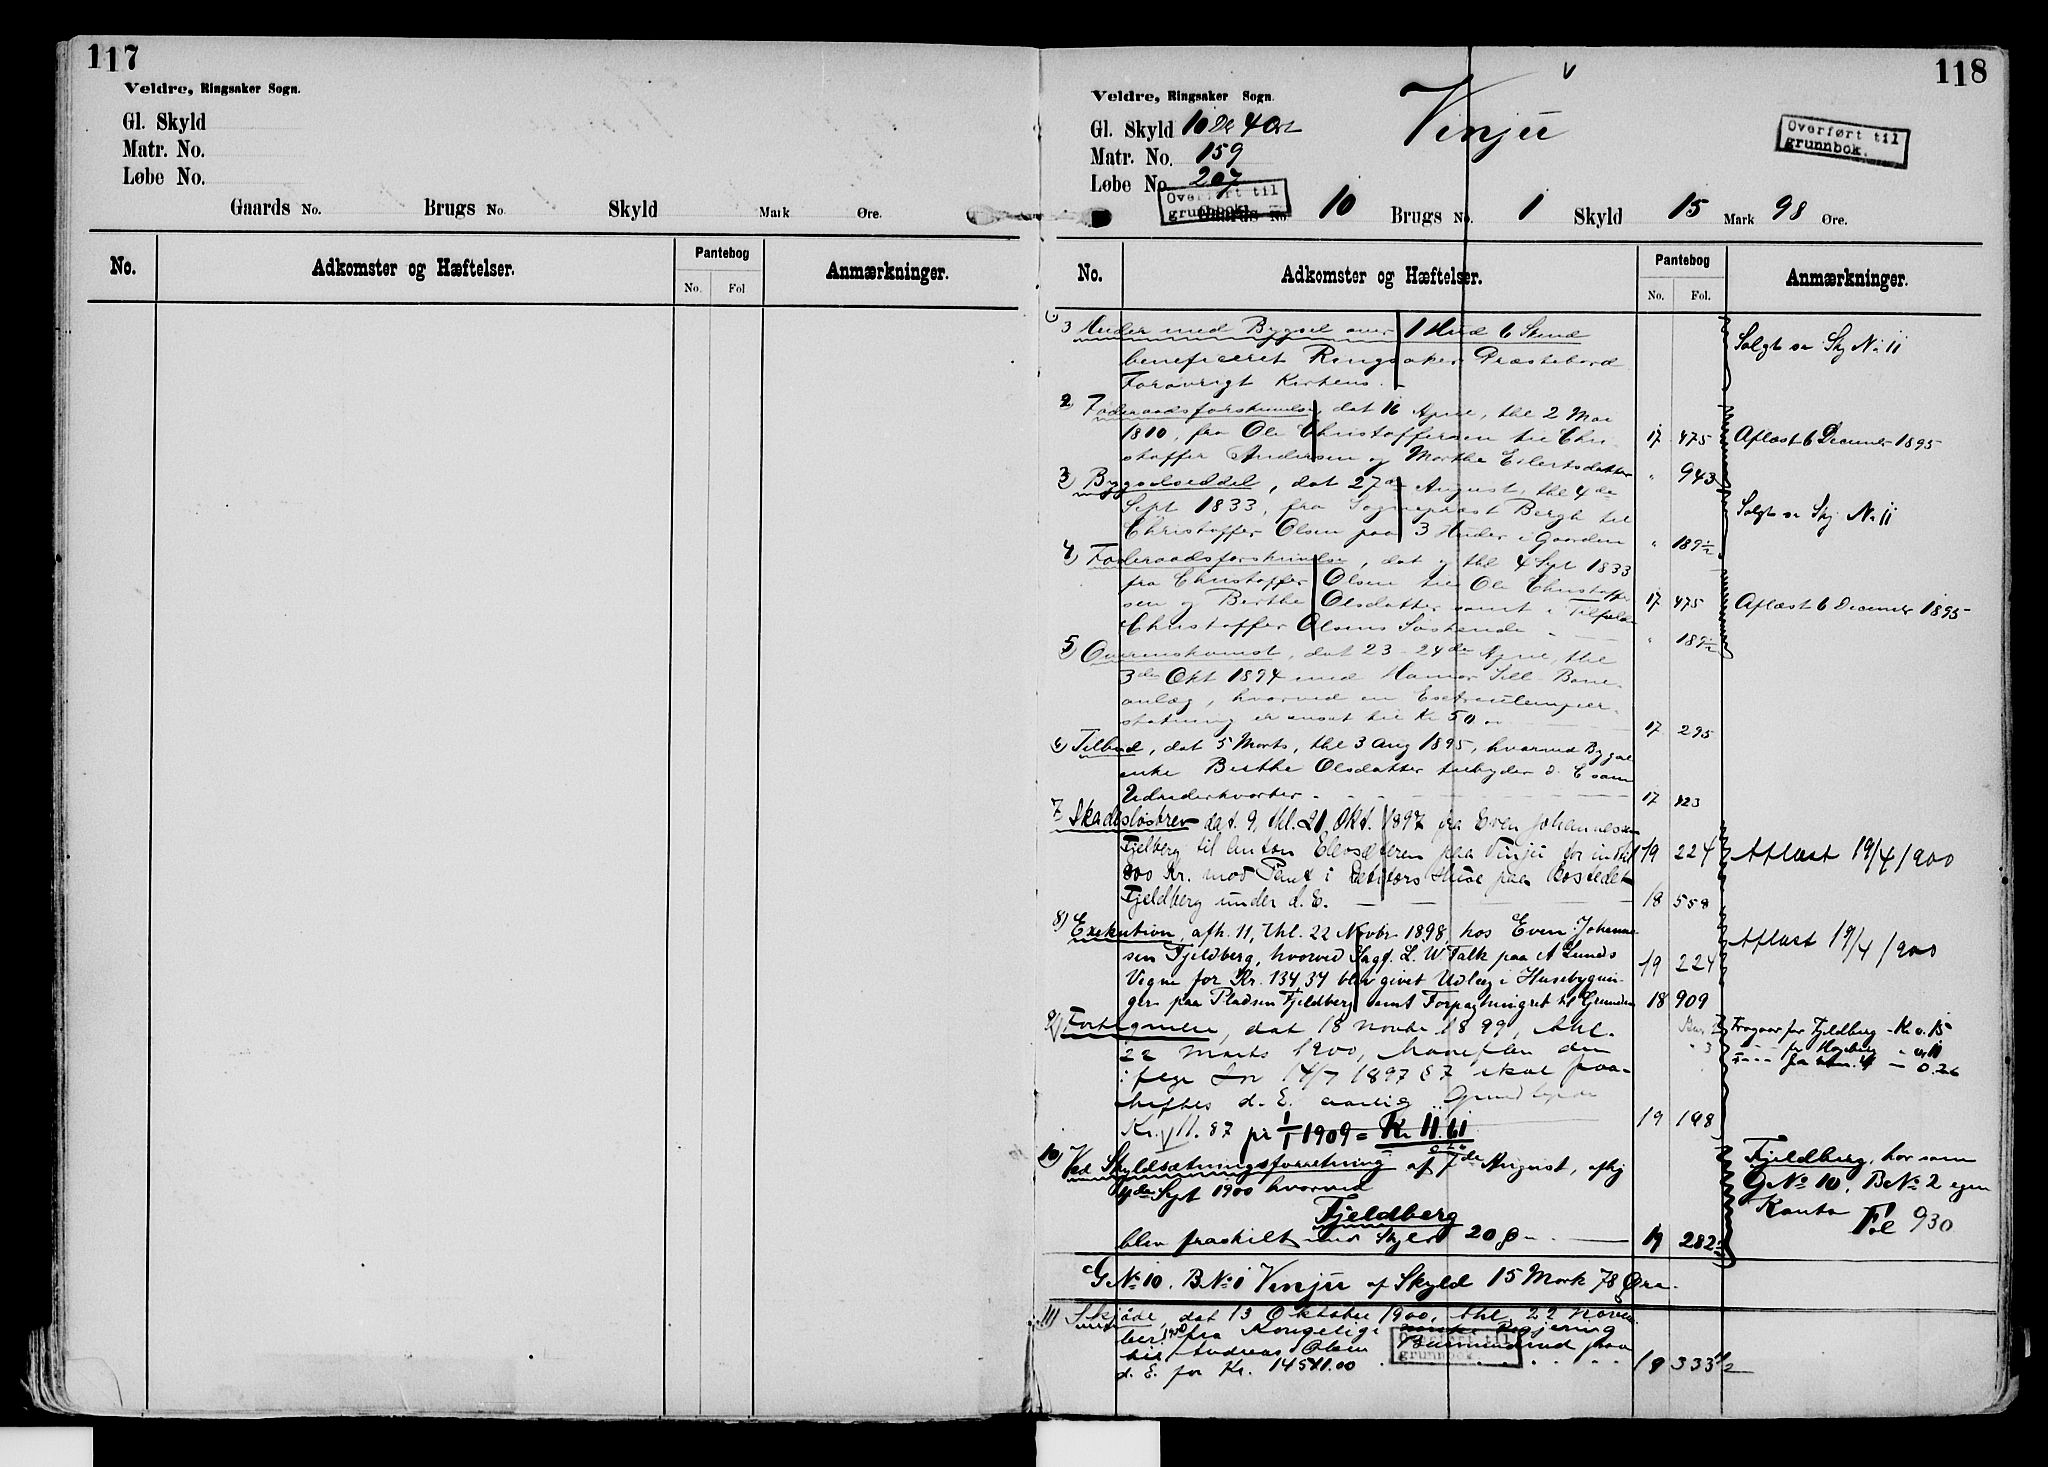 117
Veldre, Ringsaker Sogn.
Gl. Skyld
Matr. No.
Løbe No.
Gaards No. Brugs No. Skyld Mark Øre.
No. Adkomster og Hæftelser. Pantebog Anmærkninger.
No. Fol
118
Veldre, Ringsaker Sogn.
Vinju
Overført til
grunnbok.
Gl. Skyld 10 Dl 4 Ort
Matr. No. 159
Løbe No. 207
Overført til
grunnbok.
Gaards No. 10 Brugs No. 1 Skyld 15 Mark 98 Øre.
No. Adkomster og Hæftelser. Pantebog Anmærkninger.
No. Fol.
3 Huder med Bygsel over 1 Hud 6 Skind
beneficeret Ringsaker Præstebord
Forøvrigt Kirkens.
Solgt se Skj No 11
2) Føderaadsforskrivelse, dat 16 April, thl 2 Mai
1810, fra Ole Christoffersen til Chri-
stoffer Andersen og Marthe Eilertsdatter
17 475 Aflæst 6 December 1895
" 943
3) Bygselseddel, dat 27de August, thl 4de
Sept 1833, fra Sogneprest Bergh til
Christoffer Olsen paa 3 Huder i Gaarden
" 189 1/2
Solgt se Skj No 11
4) Føderaadsforskrivelse, dat og thl 4 Sept 1833
fra Christoffer Olsen til Ole Christoffer-
sen og Berthe Olsdatter samt i Tilfælde
Christoffer Olsens Søskende
17 475 Aflæst 6 December 1895
" 189 1/2
5) Overenskomst, dat 23-24de April, thl
3die Okt 1894 med Hamar Sell Bane-
anlæg, hvorved en
statning er ansat til Kr 50
17 295
6) Tilbud, dat 5 Marts, thl 3 Aug 1895, hvorved Bygsel
enke Berthe Olsdatter tilbyder d. E som
Udraderkvarter
17 423
7 Skadesløsbrev dat. 9, thl. 21 Okt. 1897 fra Even Johannessen
Fjelberg til Anton Elvsæteren paa Vinju for indtil
800 Kr. mod Pant i Debitors Huse paa Bostedet
Fjeldberg under d. E.
19 224 Aflæst 19/4 1900
18 558
8) Exekution, afh. 11, thl. 22 Novbr 1898 hos Even Johannes-
sen Fjeldberg, hvorved Sagf. L. W Falk paa A Lunds
Vegne for Kr. 134 34 blev givet Udlæg i Husebygnin-
ger paa Pladsen Fjeldberg samt Forpagtningret til Grunden
19 224
18 909
Aflæst 19/4 1900
9) Fortegnelse, dat 18 Novbr 1899, thl.
22 Marts 1900, hvorefter der
ifølge Lov 14/7 1897 § 7 skal paa-
heftes d. E. aarlig
Kr. 11.87 pr 1/1 1909 = Kr 11.61
19 198
Fragaar for Fjeldberg - Kr 0.15
for Høgberg - 0.11
0.26
10) Ved Skyldsætningsforretning af 7de August, afhj
4de Sept 1900 hvorved
Fjeldberg
blev fraskilt med Skyld 20 Ø
19 282
Fjeldberg, har som
GNo 10, BNo 2 egen
Konto Fol 930
GNo 10. BNo 1 Vinju af Skyld 15 Mark 78 Øre.
11) Skjøde, dat 13 Oktober 1900, thl 22 Novem-
ber 1900 fra Kongelige norske Regjering
til Andreas Olsen paa
d. E. for Kr. 14571.00
19 333 1/2
Overført til
grunnbok.